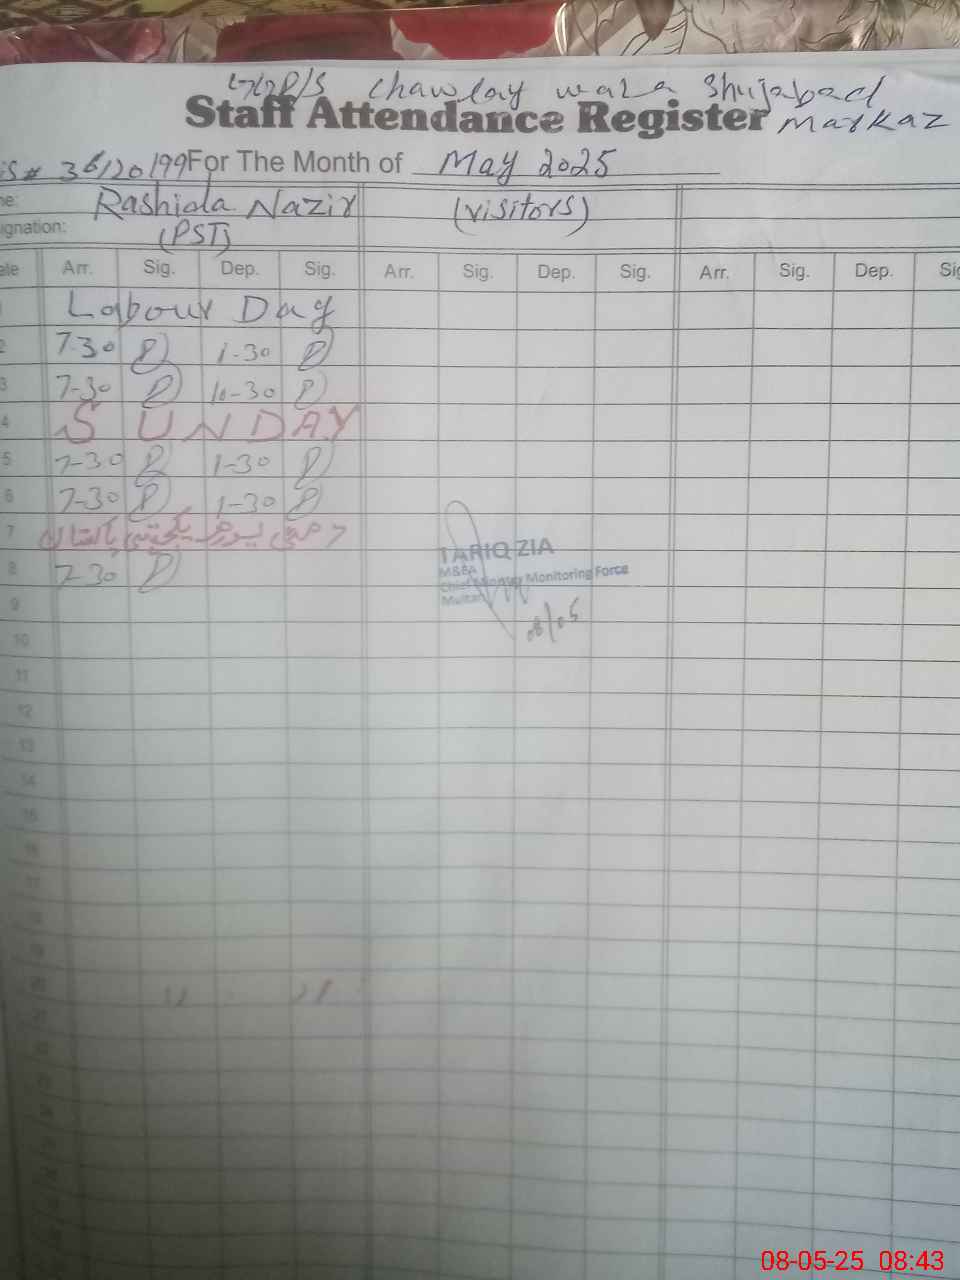 GGP/S Chawlay wala Shujabad
Staff Attendance Register Markaz
iS# 36120199 For The Month of May 2025
ne: Rashida Nazir (visitors)
ignation: (PST)
ate Arr. Sig. Dep. Sig. Arr. Sig. Dep. Sig. Arr. Sig. Dep. Sig
Labour Day
2 7-30 1-30
3 7-30 10-30
4 SUNDAY
5 7-30 1-30
6 7-30 1-30
7 7 مئی یوم یکجہتی پاکستان
8 7-30
TARIQ ZIA
M&EA
Chief Minister Monitoring Force
Multan
08/05
9
10
11
12
13
14
08-05-25 08:43